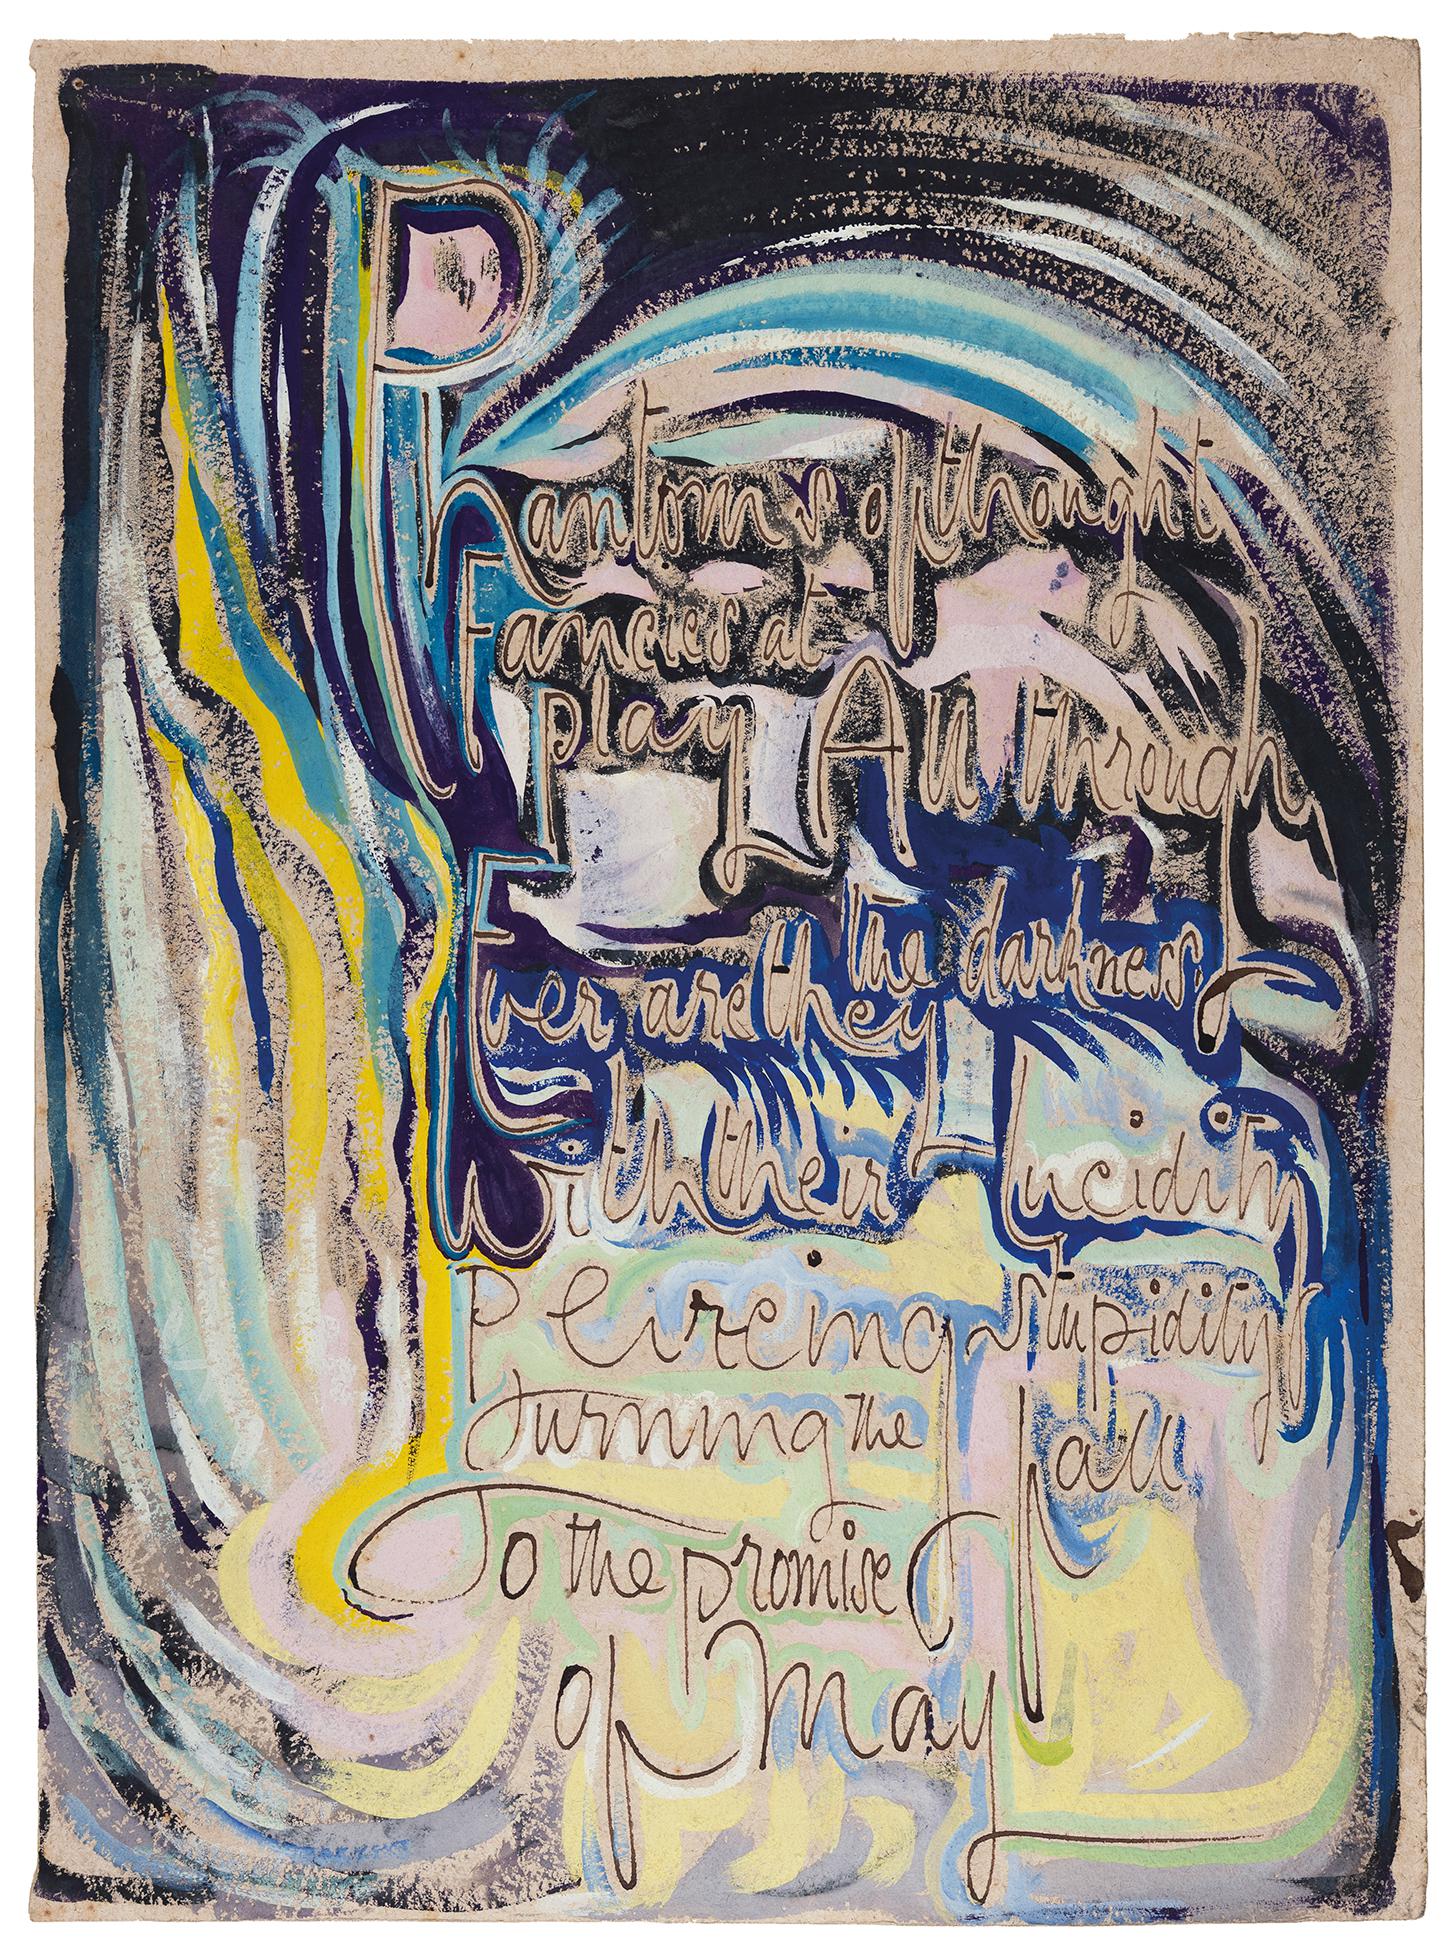 Phantoms of thought
Fancies at
play All through
the darkness
Ever are they
with their lucidity
Peircing stupidity
turning the fall
To the promise
of May